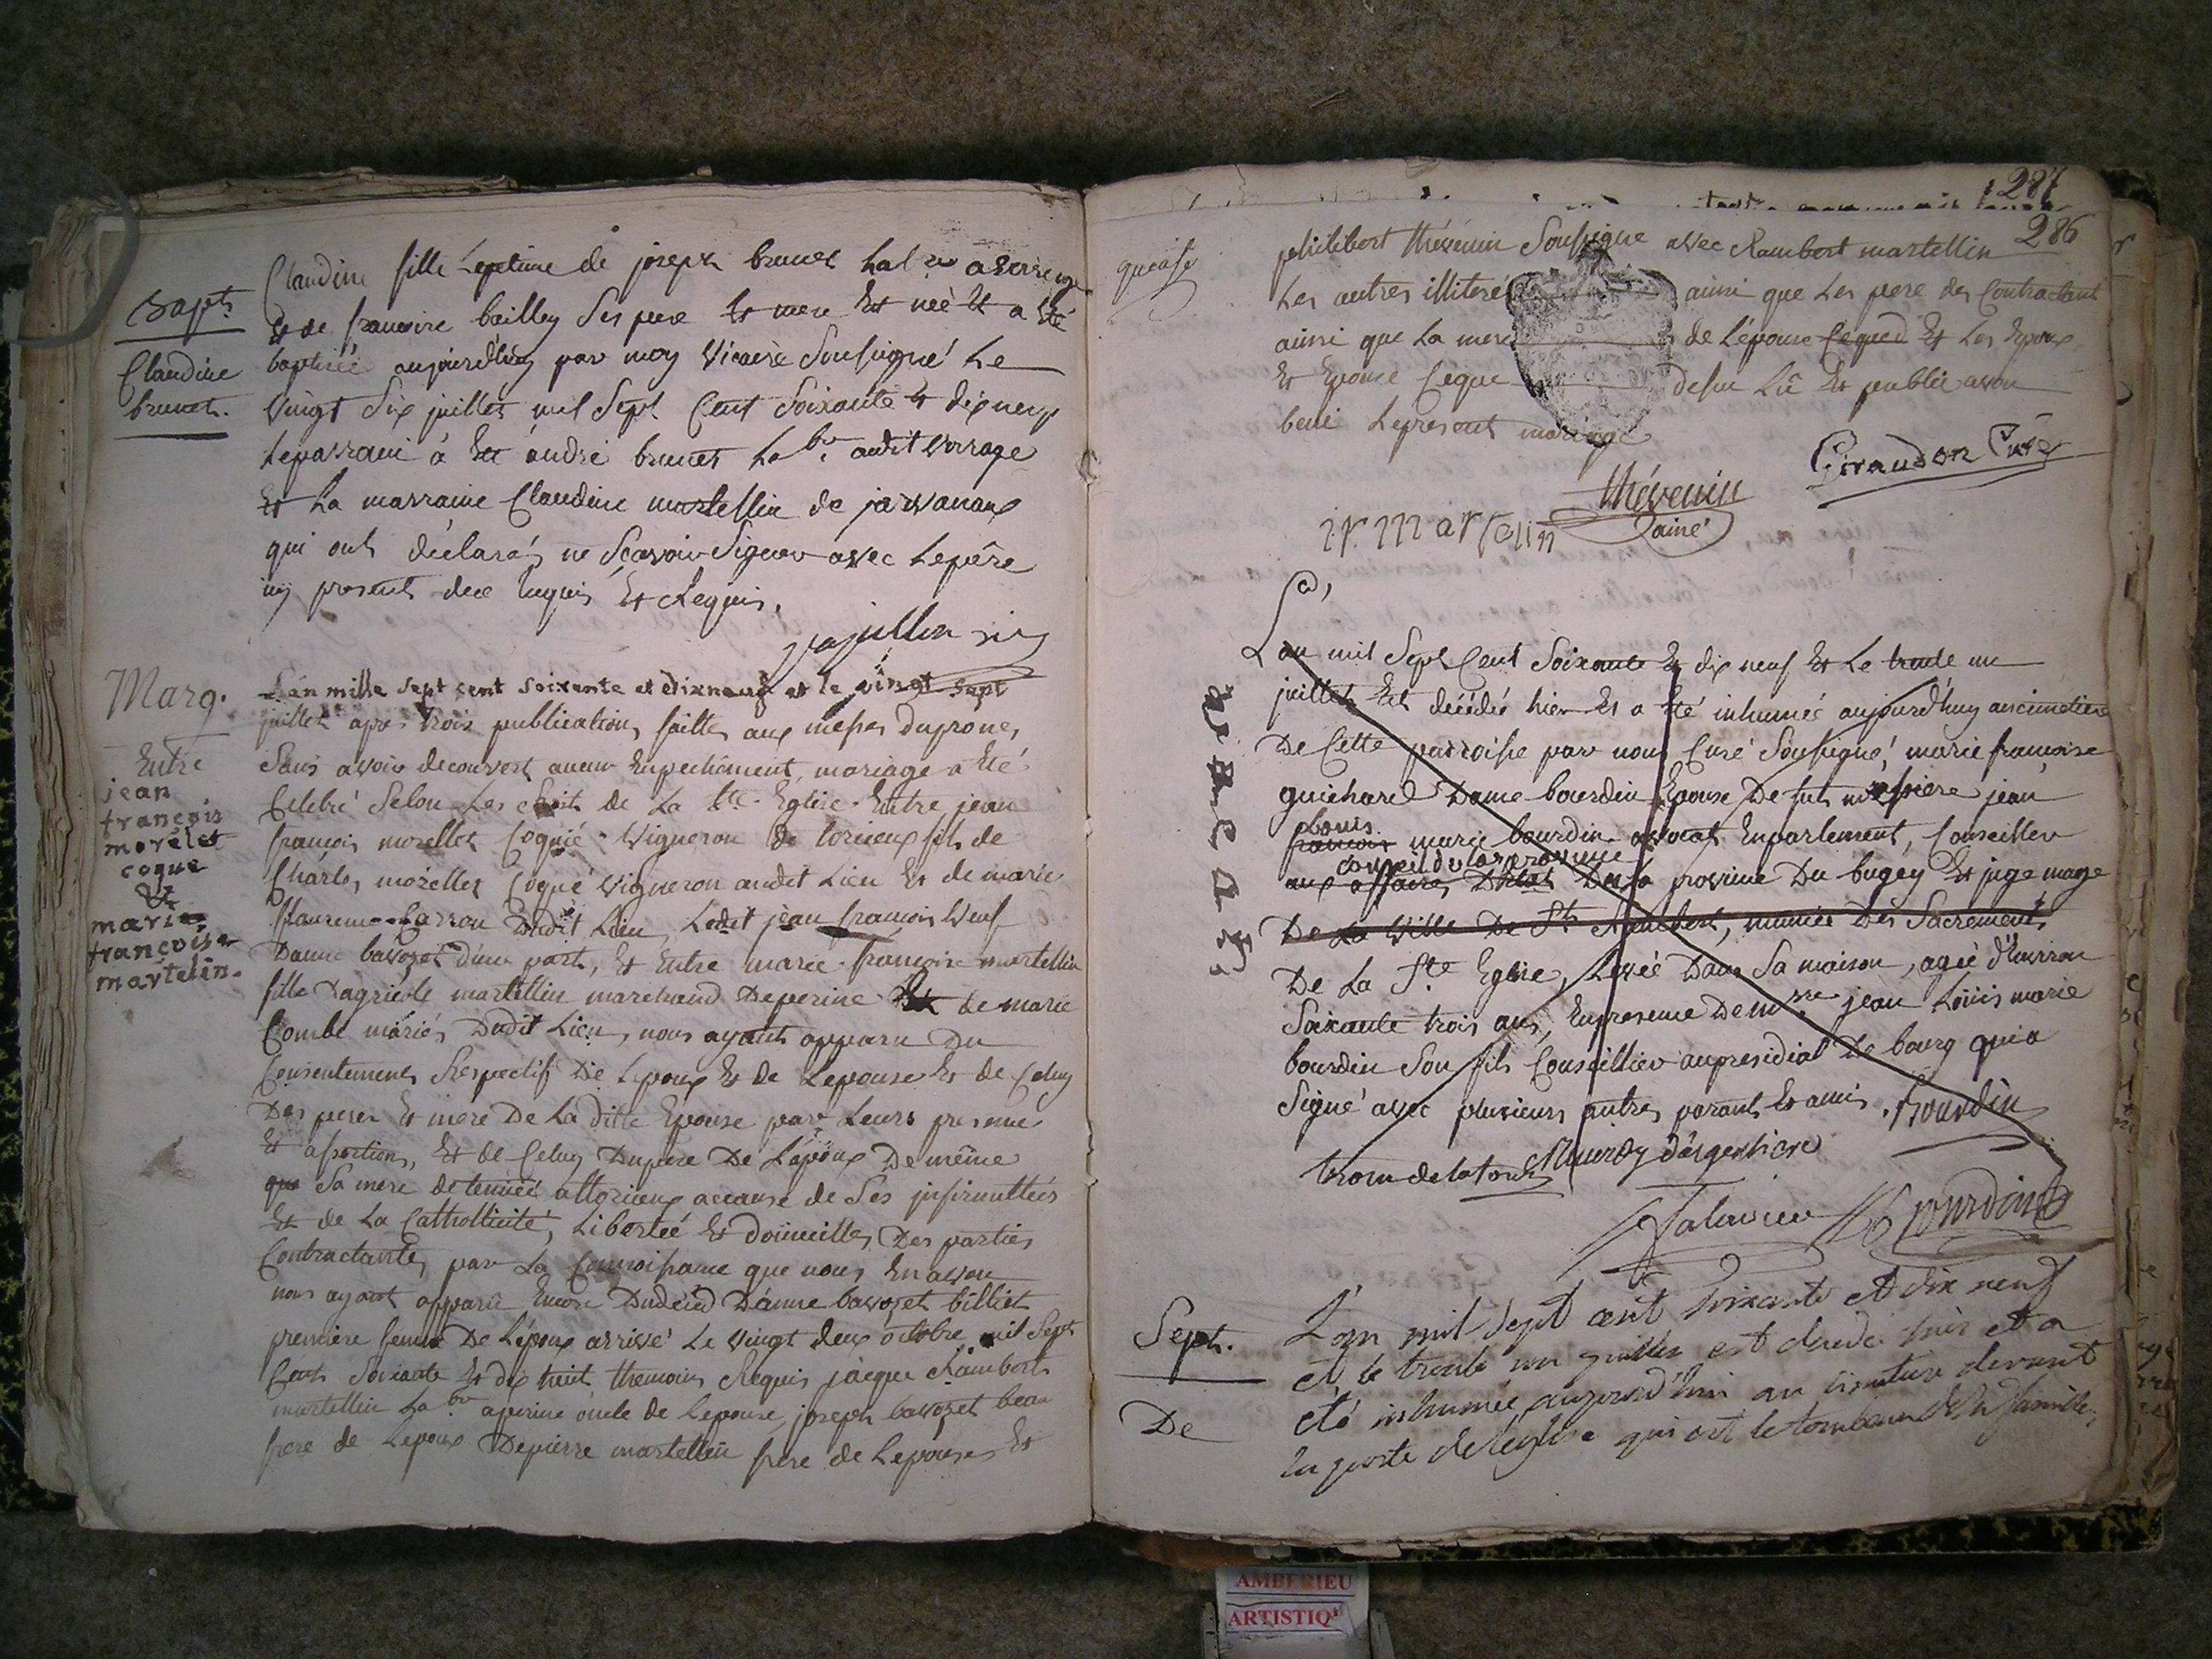 Bapt.
Claudine
brunet.
Claudine fille Legitime de joseph brunet
Et de francoise bailley Ses pere Et mere Est née Et a Eté
baptisée aujourd'huy par moy Vicaire Soussigné Le
Vingt Six juillet mil Sept Cent Soixante Et dix neuf
Leparrain à Eté andré brunet audit
Et La marraine Claudine martellin de
qui ont déclarés ne Scavoir Signer avec Lepere
icy present Enquis Et Requis.
Marg.
Entre
jean
françois
morelet
coque
Et
marie
françoise
martelin.
L'an mille sept cent soixante et dixneuf et le vingt sept
juillet apres trois publications faittes aux messes du prone,
Sans avoir decouvert aucun Empechement, mariage a Eté
Celebré Selon Les de La Ste Eglise Entre jean
francois morellet Coque Vigneron de torcieux fils de
Charles morellet Coque Vigneron audit Lieu Et de marie
Dudit Lieu, Ledit jean francois Veuf
Danne bavozet d'une part, Et Entre marie francoise martellin
fille Dagricole martellin marchand Deperine Et de marie
Combe mariés Dudit Lieu, nous ayant apparu Du
Consentement Respectif De Lepoux Et de Lepouse Et de Celuy
Des peres Et mere De La ditte Epouse par Leurs presence
Et assertions, Et de Celuy Dupere De Lépoux De même
que Sa mere detenue attorcieux acause de Ses infirmittés
Et de La Cattholicité, Libertée Et domicilles Des parties
Contractantes, par La Connoissance que nous En avon
nous ayant apparu Encore Dudeced Danne bavozet billiet
premiere femme De Lépoux arrivé Le vingt deux octobre mil Sept
Cent Soixante Et dix huit themoins Requis jacque Rambert
martellin aperine oncle de Lepouse, joseph bavozet beau
frere de Lepoux Depierre martellin frere de Lepouse, Et
287
286
philibert thévenin Soussigne avec Rambert martellin
Les autres illiteré ainsi que Les pere des Contractant
ainsi que La mere de Lépouse Et Les Epoux
Et Epouse Ceque desus Lû Et publié avon
beni Lepresent mariage
Giraudon Curé
thévenin
ainé
i r martelin
L'an mil Sept Cent Soixante Et dix neuf Et Le trente un
juillet Est décédée hier Et a Eté inhumée aujourd'huy aucimetiere
De Cette parroisse par nous Curé Soussigné, marie francoise
guichard Dame bourdin Epouse De fut messire jean
Louis
francois marie bourdin avocat Enparlement, Conseiller
conseil de la province
aux affaires Detat De La province Du bugey Et juge mage
De La Ville De St Rambert, munie Des Sacrements
De La Ste Eglise, Levée Dans Sa maison, agée d'Environ
Soixante trois ans, Enpresence De mre jean Loüis marie
bourdin Son fils Conseiller aupresidial De bourg qui a
Signé avec plusieurs autres parants Et amis. Bourdin
trocu de la tour d'argentiere
Bourdin
Sept.
De
L'an mil Sept cent soixante et dix neuf
et le trente un juillet est decedée hier et a
été inhumée aujourd'hui au cimetiere devant
la porte de leglise qui est le tombeau de sa famille,
AMBERIEU
ARTISTIQ